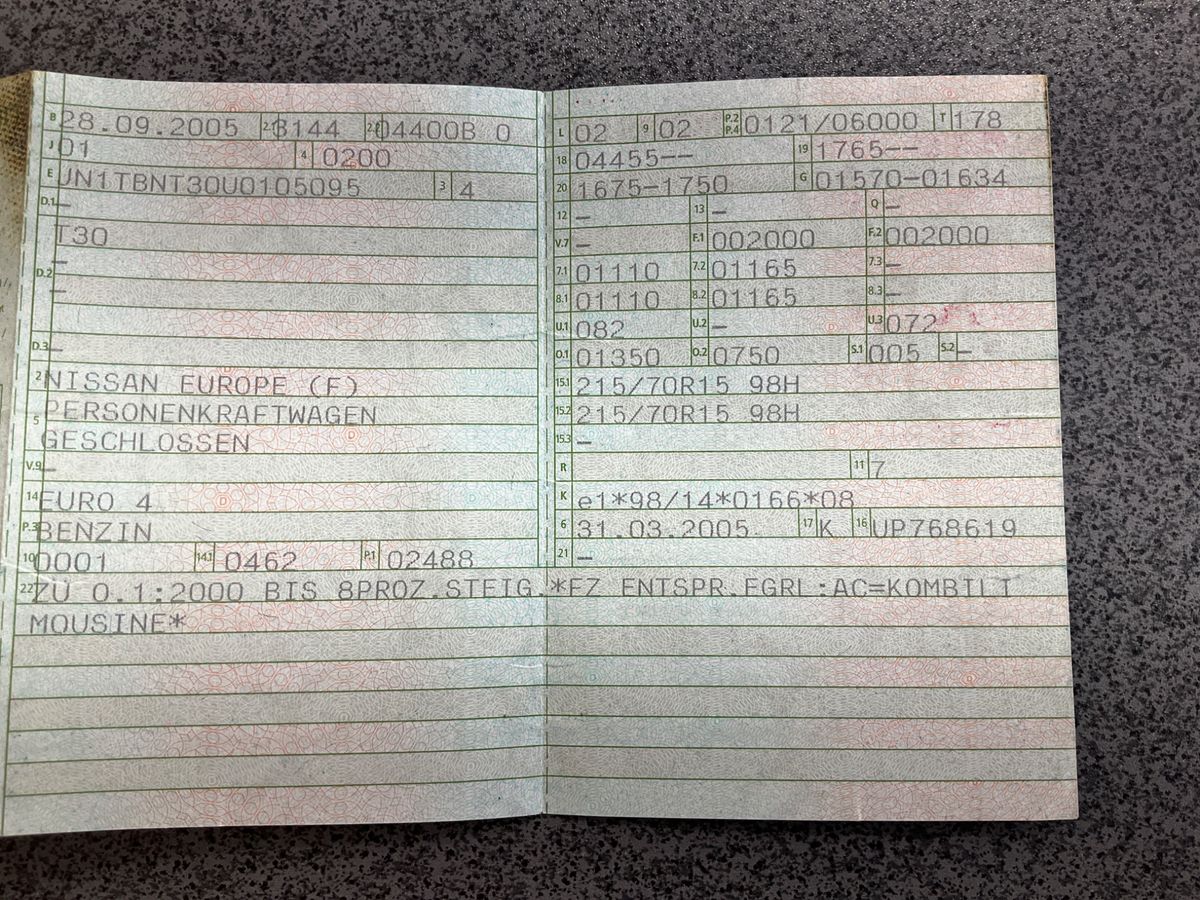 B 28.09.2005 2.1 8144 2.2 04400B 0
J 01 4 0200
E JN1TBNT30U0105095 3 4
D.1 –
T30
–
D.2 –
D.3 –
2 NISSAN EUROPE (F)
5 PERSONENKRAFTWAGEN
GESCHLOSSEN
V.9 –
14 EURO 4
P.3 BENZIN
10 0001 14.1 0462 P.1 02488
L 02 9 02 P.2 P.4 0121/06000 T 178
18 04455–– 19 1765––
20 1675-1750 G 01570-01634
12 – 13 – Q –
V.7 – F.1 002000 F.2 002000
7.1 01110 7.2 01165 7.3 –
8.1 01110 8.2 01165 8.3 –
U.1 082 U.2 – U.3 072
O.1 01350 O.2 0750 S.1 005 S.2 –
15.1 215/70R15 98H
15.2 215/70R15 98H
15.3 –
R 11 7
K e1*98/14*0166*08
6 31.03.2005 17 K 16 UP768619
21 –
22 ZU O.1:2000 BIS 8PROZ.STEIG.*FZ ENTSPR.EGRL:AC=KOMBILI
MOUSINE*